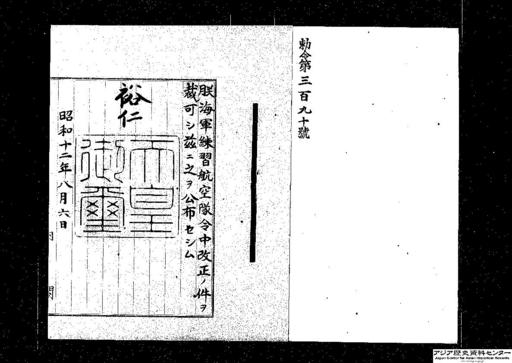 勅令第三百九十號
朕海軍練習航空隊令中改正ノ件ヲ
裁可シ茲ニ之ヲ公布セシム
裕仁
天皇
御璽
昭和十二年八月六日
アジア歴史資料センター
Japan Center for Asian Historical Records